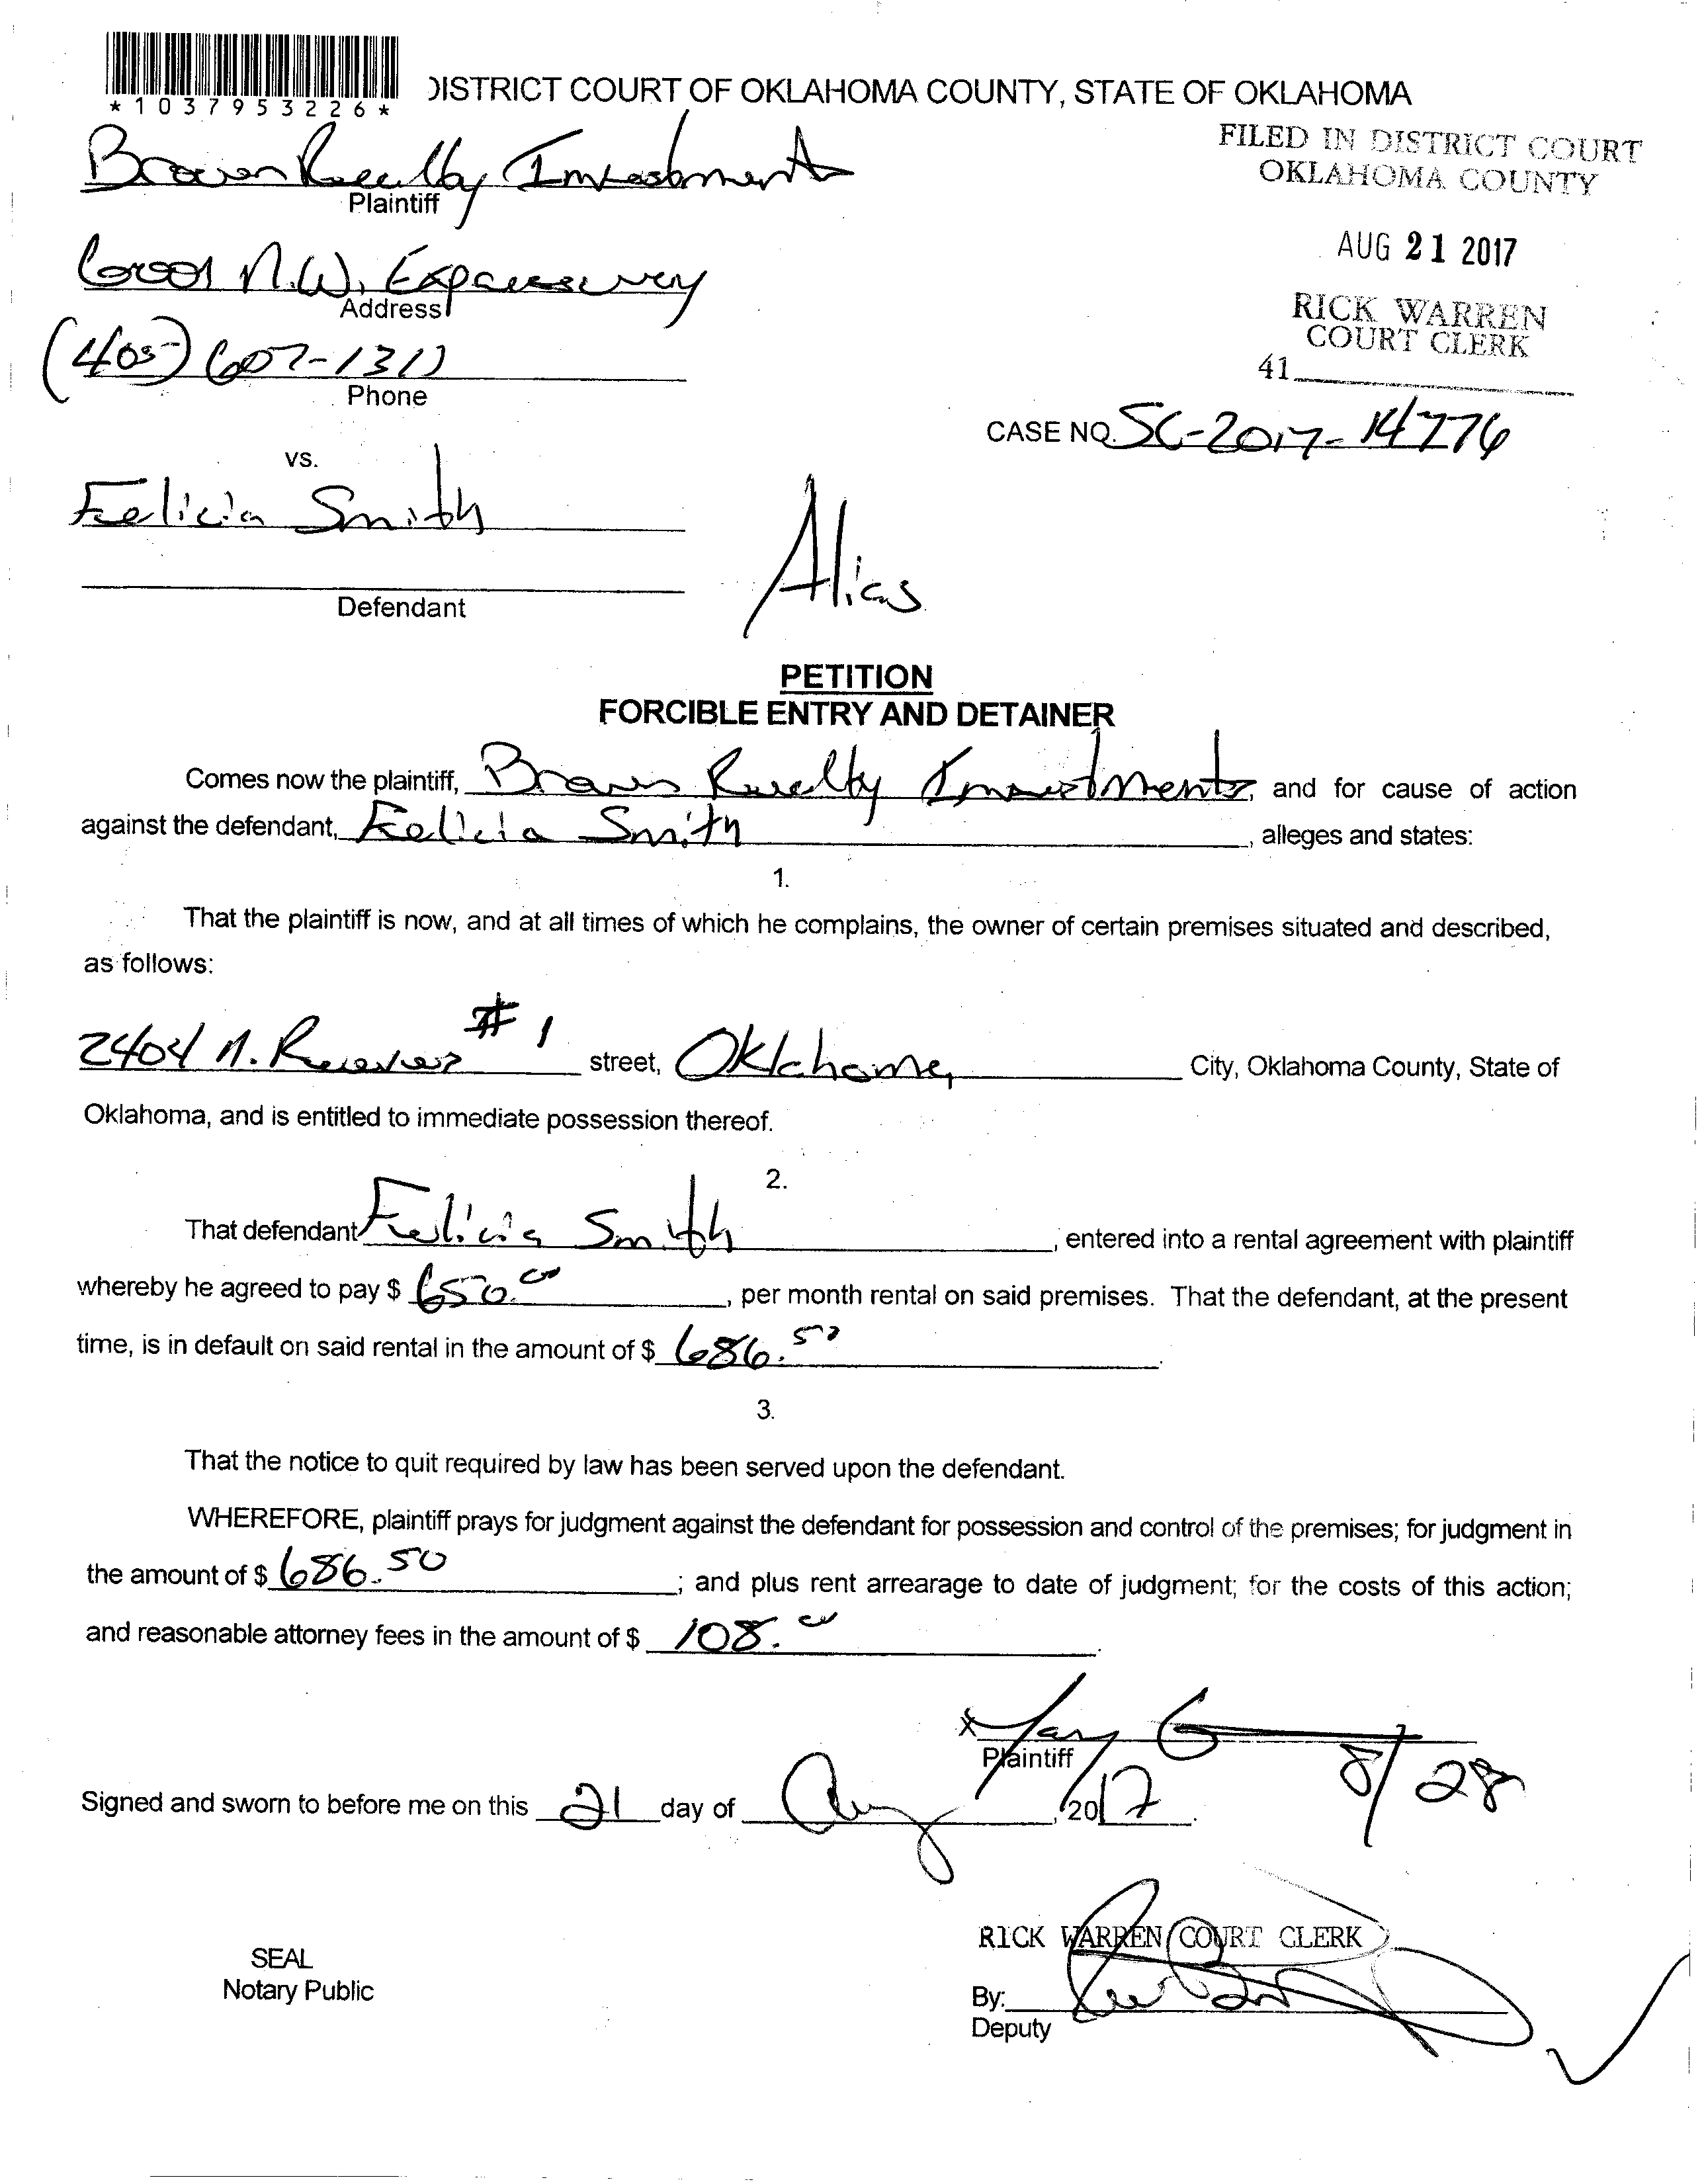 *1037953226*
DISTRICT COURT OF OKLAHOMA COUNTY, STATE OF OKLAHOMA
FILED IN DISTRICT COURT
OKLAHOMA COUNTY
AUG 21 2017
RICK WARREN
COURT CLERK
41
Brown Realty Investments
Plaintiff
6001 N.W. Expressway
Address
(405) 607-1311
Phone
CASE NO. SC-2017-14776
vs.
Felicia Smith
Defendant
Alias
PETITION
FORCIBLE ENTRY AND DETAINER
Comes now the plaintiff, Brown Realty Investments, and for cause of action
against the defendant, Felicia Smith, alleges and states:
1.
That the plaintiff is now, and at all times of which he complains, the owner of certain premises situated and described,
as follows:
2404 N. #1 street, Oklahoma City, Oklahoma County, State of
Oklahoma, and is entitled to immediate possession thereof.
2.
That defendant Felicia Smith, entered into a rental agreement with plaintiff
whereby he agreed to pay $ 650.00, per month rental on said premises. That the defendant, at the present
time, is in default on said rental in the amount of $ 686.50.
3.
That the notice to quit required by law has been served upon the defendant.
WHEREFORE, plaintiff prays for judgment against the defendant for possession and control of the premises; for judgment in
the amount of $ 686.50; and plus rent arrearage to date of judgment; for the costs of this action;
and reasonable attorney fees in the amount of $ 108.00.
x
Plaintiff
8/28
Signed and sworn to before me on this 21 day of Aug, 2017.
RICK WARREN COURT CLERK
SEAL
Notary Public
By:
Deputy